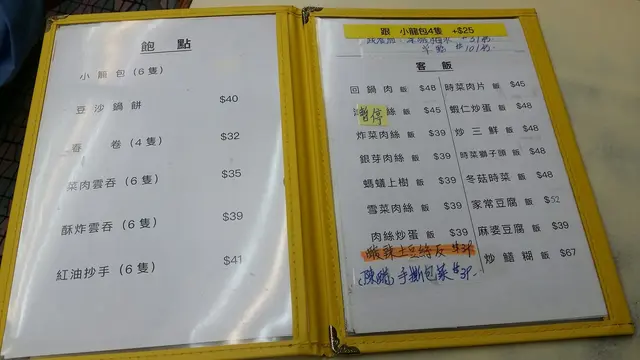 飽點
小籠包(6隻)
豆沙鍋餅 $40
春卷(4隻) $32
菜肉雲吞(6隻) $35
酥炸雲吞(6隻) $39
紅油抄手(6隻) $41
跟 小籠包4隻 +$25
客飯
回鍋肉 飯 $48
暫停 絲 飯 $45
炸菜肉絲 飯 $39
銀芽肉絲 飯 $39
螞蟻上樹 飯 $39
雪菜肉絲 飯 $39
肉絲炒蛋 飯 $39
酸辣土豆絲反 $39
手撕包菜 $39.
時菜肉片 飯 $45
蝦仁炒蛋 飯 $48
炒三鮮 飯 $48
時菜獅子頭 飯 $48
冬菇時菜 飯 $48
家常豆腐 飯 $52
麻婆豆腐 飯 $39
炒鱔糊 飯 $67